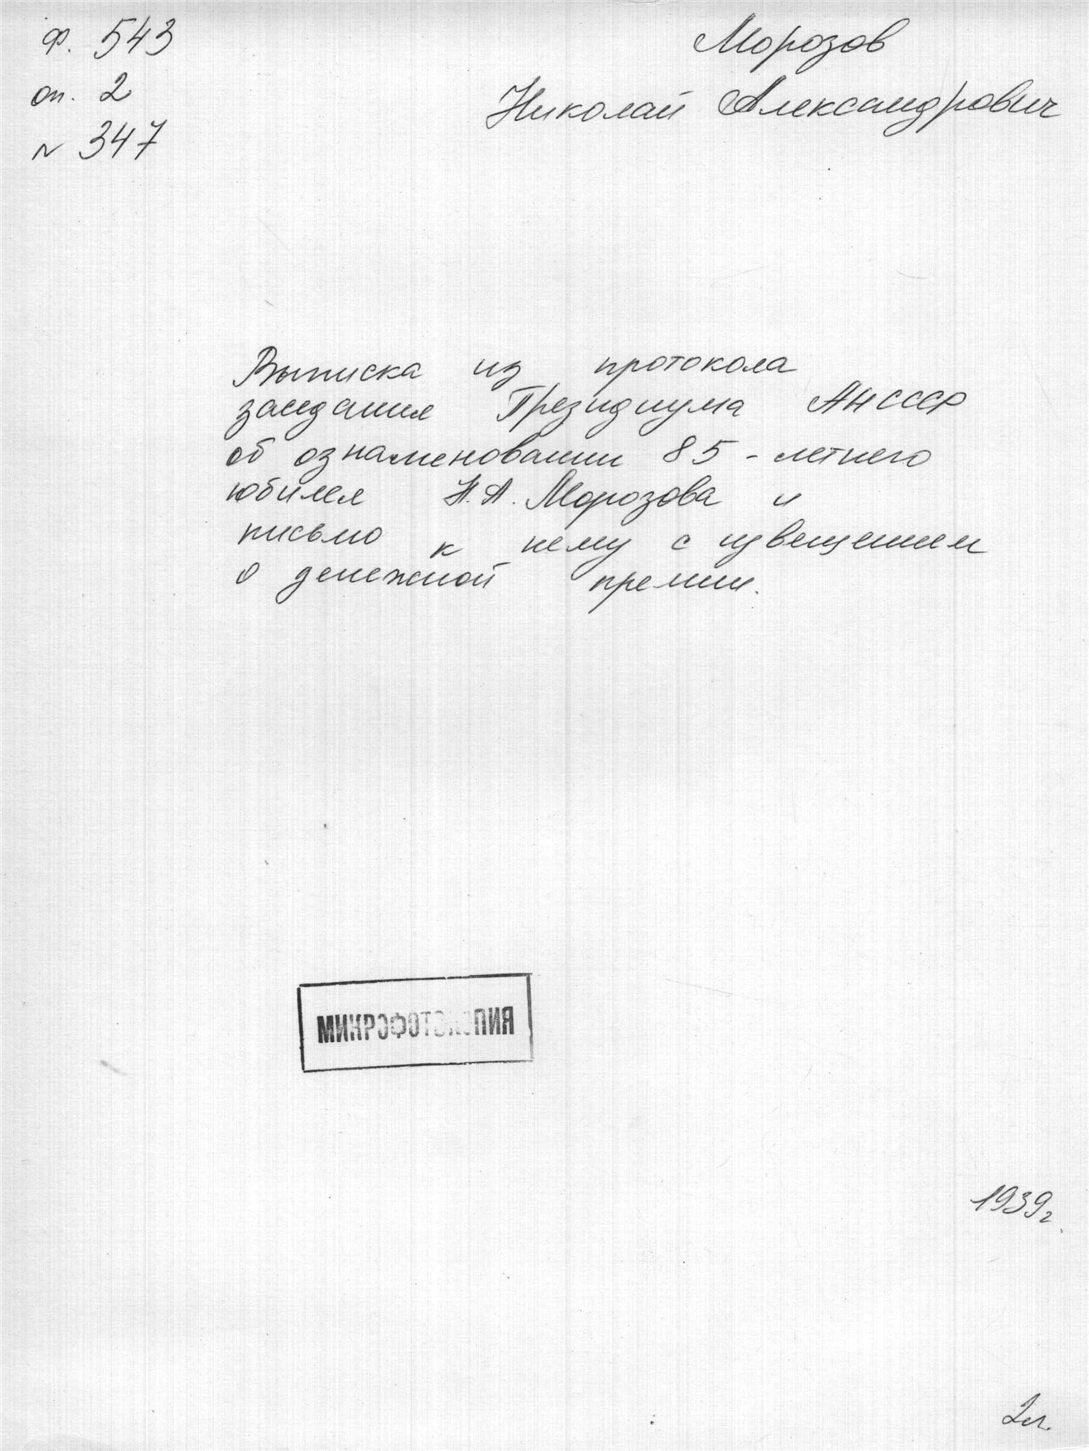 ф. 543
оп. 2
№ 347
Морозов
Николай Александрович
Выписка из протокола
заседания Президиума АН СССР
об ознаменовании 85-летнего
юбилея Н.А. Морозова и
письмо к нему с извещением
о денежной премии.
МИКРОФОТОКОПИЯ
1939г.
2л.